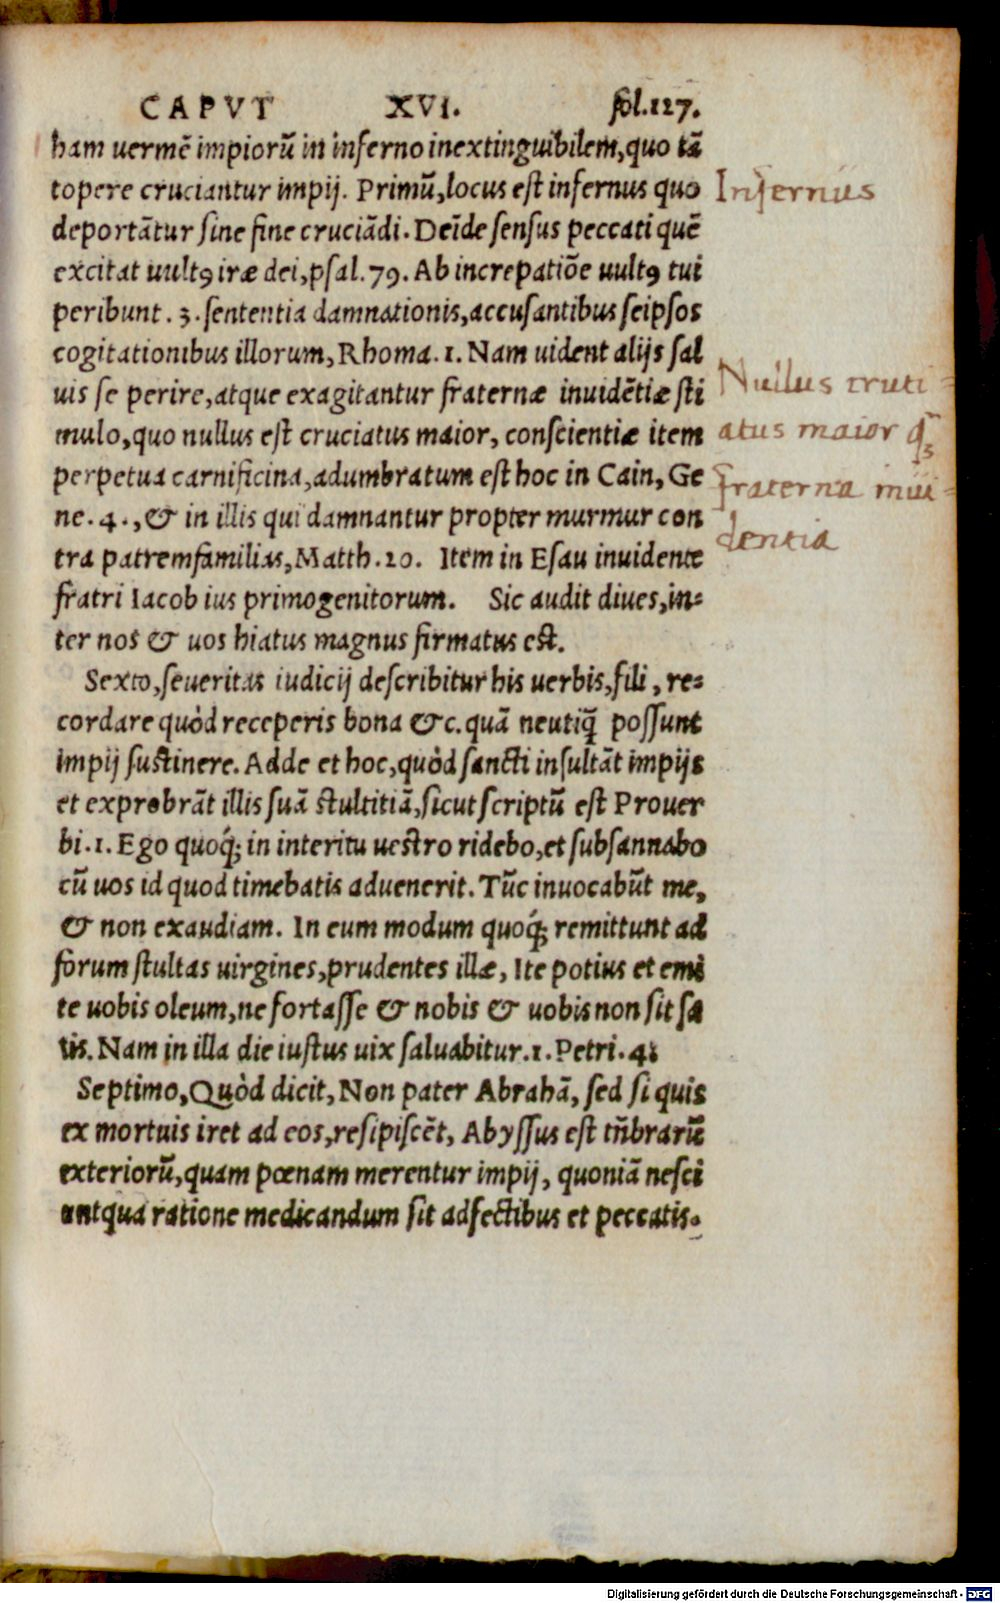 CAPVT XVI. fol.127.
ham uermē impiorū in inferno inextinguibilem,quo tā
topere cruciantur impij. Primū,locus est infernus quo
Infernus
deportātur sine fine cruciādi. Deīde sensus peccati quē
excitat uultꝰ iræ dei,psal.79. Ab increpatiōe uultꝰ tui
peribunt. 3. sententia damnationis,accusantibus seipsos
cogitationibus illorum, Rhoma. 1. Nam uident alijs sal
uis se perire,atque exagitantur fraternæ inuidētiæ sti
Nullus cruti=
mulo,quo nullus est cruciatus maior, conscientiæ item
atus maior q̃3
perpetua carnificina,adumbratum est hoc in Cain, Ge
fraterna inui=
ne. 4., & in illis qui damnantur propter murmur con
dentia
tra patremfamilias,Matth.20. Item in Esau inuidente
fratri Iacob ius primogenitorum. Sic audit diues,in-
ter nos & uos hiatus magnus firmatus est.
Sexto,seueritas iudicij describitur his uerbis,fili , re-
cordare quòd receperis bona &c. quā neutiq̄ possunt
impij sustinere. Adde et hoc,quòd sancti insultāt impijs
et exprobrāt illis suā stultitiā,sicut scriptū est Prouer
bi.1. Ego quoq́; in interitu uestro ridebo,et subsannabo
cū uos id quod timebatis aduenerit. Tūc inuocabūt me,
& non exaudiam. In eum modum quoq́; remittunt ad
forum stultas uirgines,prudentes illæ, Ite potius et emi
te uobis oleum,ne fortasse & nobis & uobis non sit sa
tis. Nam in illa die iustus uix saluabitur.1. Petri. 4.
Septimo,Quòd dicit, Non pater Abrahā, sed si quis
ex mortuis iret ad eos,resipiscēt, Abyssus est tn̄brarū
exteriorū,quam pœnam merentur impij, quoniā nesci
unt qua ratione medicandum sit adfectibus et peccatis.
Digitalisierung gefördert durch die Deutsche Forschungsgemeinschaft - DFG